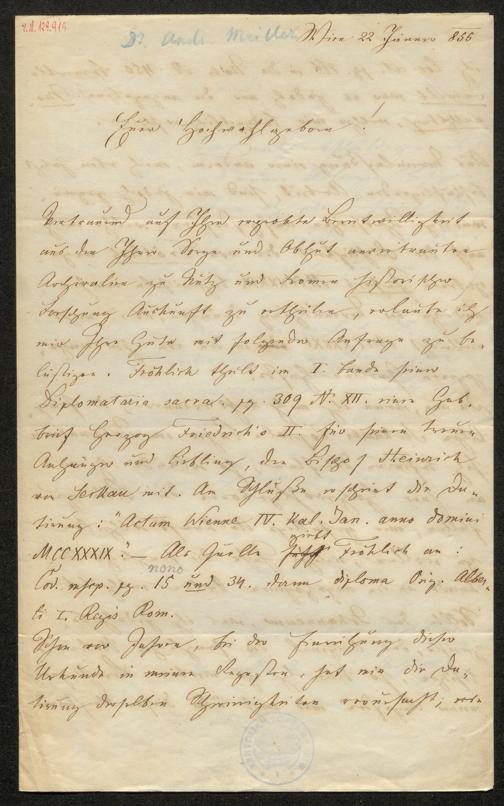 Dr. And. Meiller
Wien 22 Jänner 855
Euer Hochwohlgeboren!
Vertrauend auf Ihre erprobte Bereitwilligkeit
aus den Ihrer Sorge und Obhut anvertrauten
Archivalien zu Nutz und Frommen historischer
Forschung Auskunft zu ertheilen, erlaube ich
mir Ihre Güte mit folgender Anfrage zu be-
lästigen. Fröhlich theilt im I. Bande seiner
Diplomataria sacra. pg. 309 No XII. einen Gab-
brief Herzog Friedrich's II. für seinen treuen
Anhänger und Liebling, den Bischof Heinrich
von Seckau mit. Am Schluße erscheint die Da-
tirung: "Actum Wienne IV. Kal. Jan. anno domini
MCCXXXIX nono." — Als Quelle gibt Fröhlich an:
Cod. mscp. pg. 15 und 34. dann diploma Orig. Alber-
ti I. Regis Rom.
Schon vor Jahren, bei der Einreihung dieser
Urkunde in meine Regesten, hat mir die Da-
tirung derselben Schwierigkeiten verursacht;